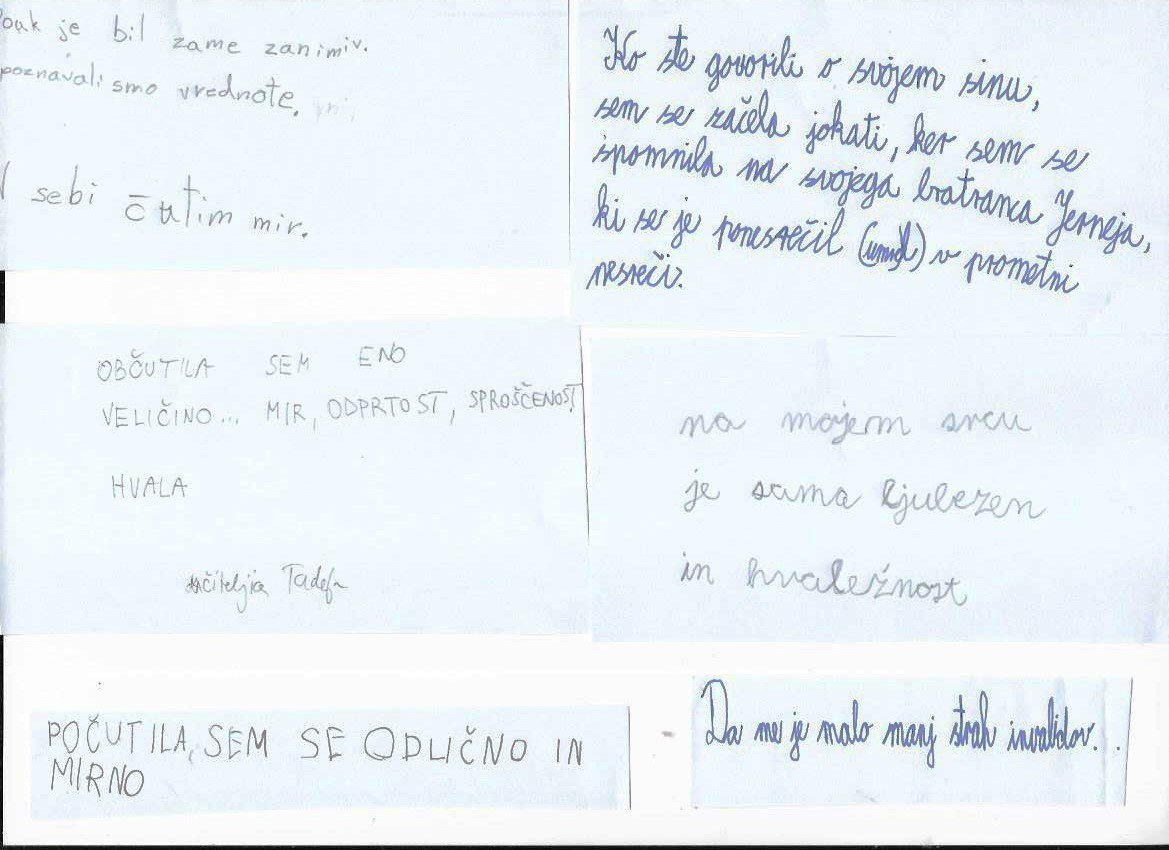 ouk je bil zame zanimiv.
poznavali smo vrednote.
V sebi čutim mir.
Ko ste govorili o svojem sinu,
sem se začela jokati, ker sem se
spomnila na svojega bratranca Jerneja,
ki se je ponesrečil (umrl) v prometni
nesreči.
OBČUTILA SEM ENO
VELIČINO... MIR, ODPRTOST, SPROŠČENOST
HVALA
učiteljica
na mojem srcu
je sama ljubezen
in hvaležnost
POČUTILA SEM SE ODLIČNO IN
MIRNO
Da me je malo manj strah invalidov..